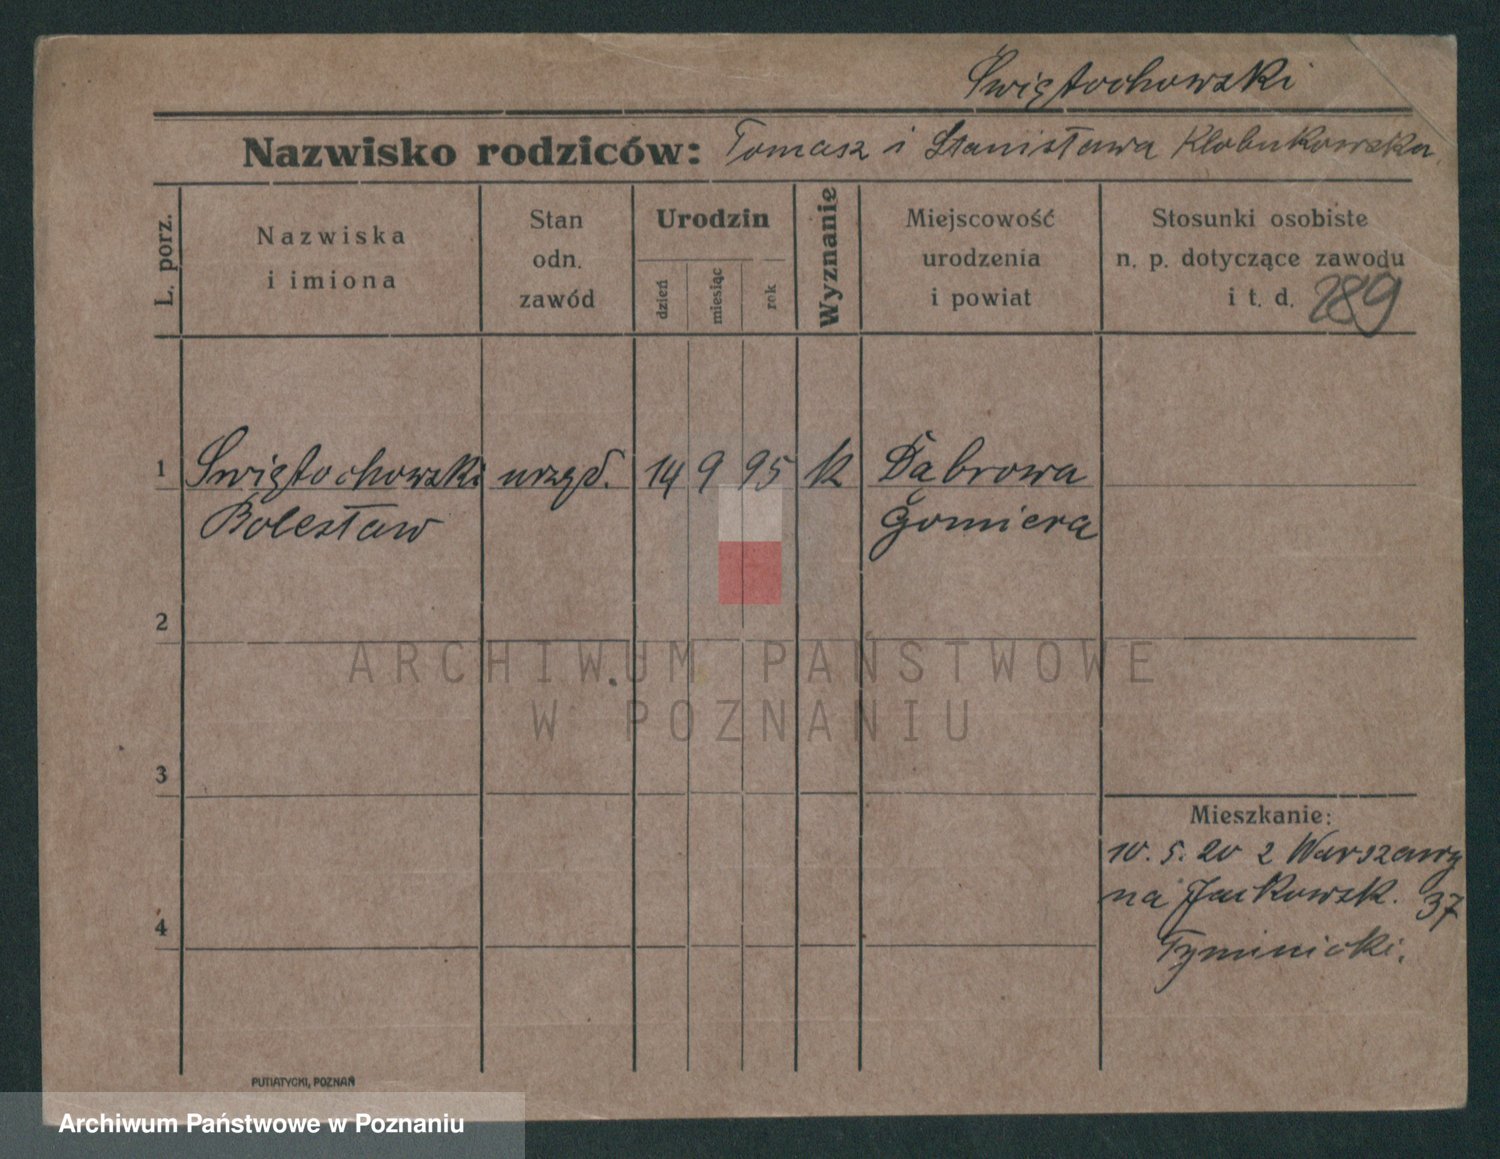 Świętochowski
Nazwisko rodziców: Tomasz i Stanisława Kłobukowska.
L. porz.
Nazwiska
i imiona
Stan
odn.
zawód
Urodzin
dzień
miesiąc
rok
Wyznanie
Miejscowość
urodzenia
i powiat
Stosunki osobiste
n. p. dotyczące zawodu
i t. d. 289
1 Świętochowski urzęd. 14 9 95 k Dąbrowa
Bolesław Gorniera
2
3
4
Mieszkanie:
10. 5. 20 z Warszawy
na Jackowsk. 37
Tyminicki.
PUTIATYCKI, POZNAŃ
ARCHIWUM PAŃSTWOWE
W POZNANIU
Archiwum Państwowe w Poznaniu